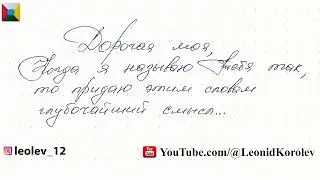 Дорогая моя,
Когда я называю Тебя так,
то придаю этим словам
глубочайший смысл...
leolev_12
YouTube.com/@LeonidKorolev